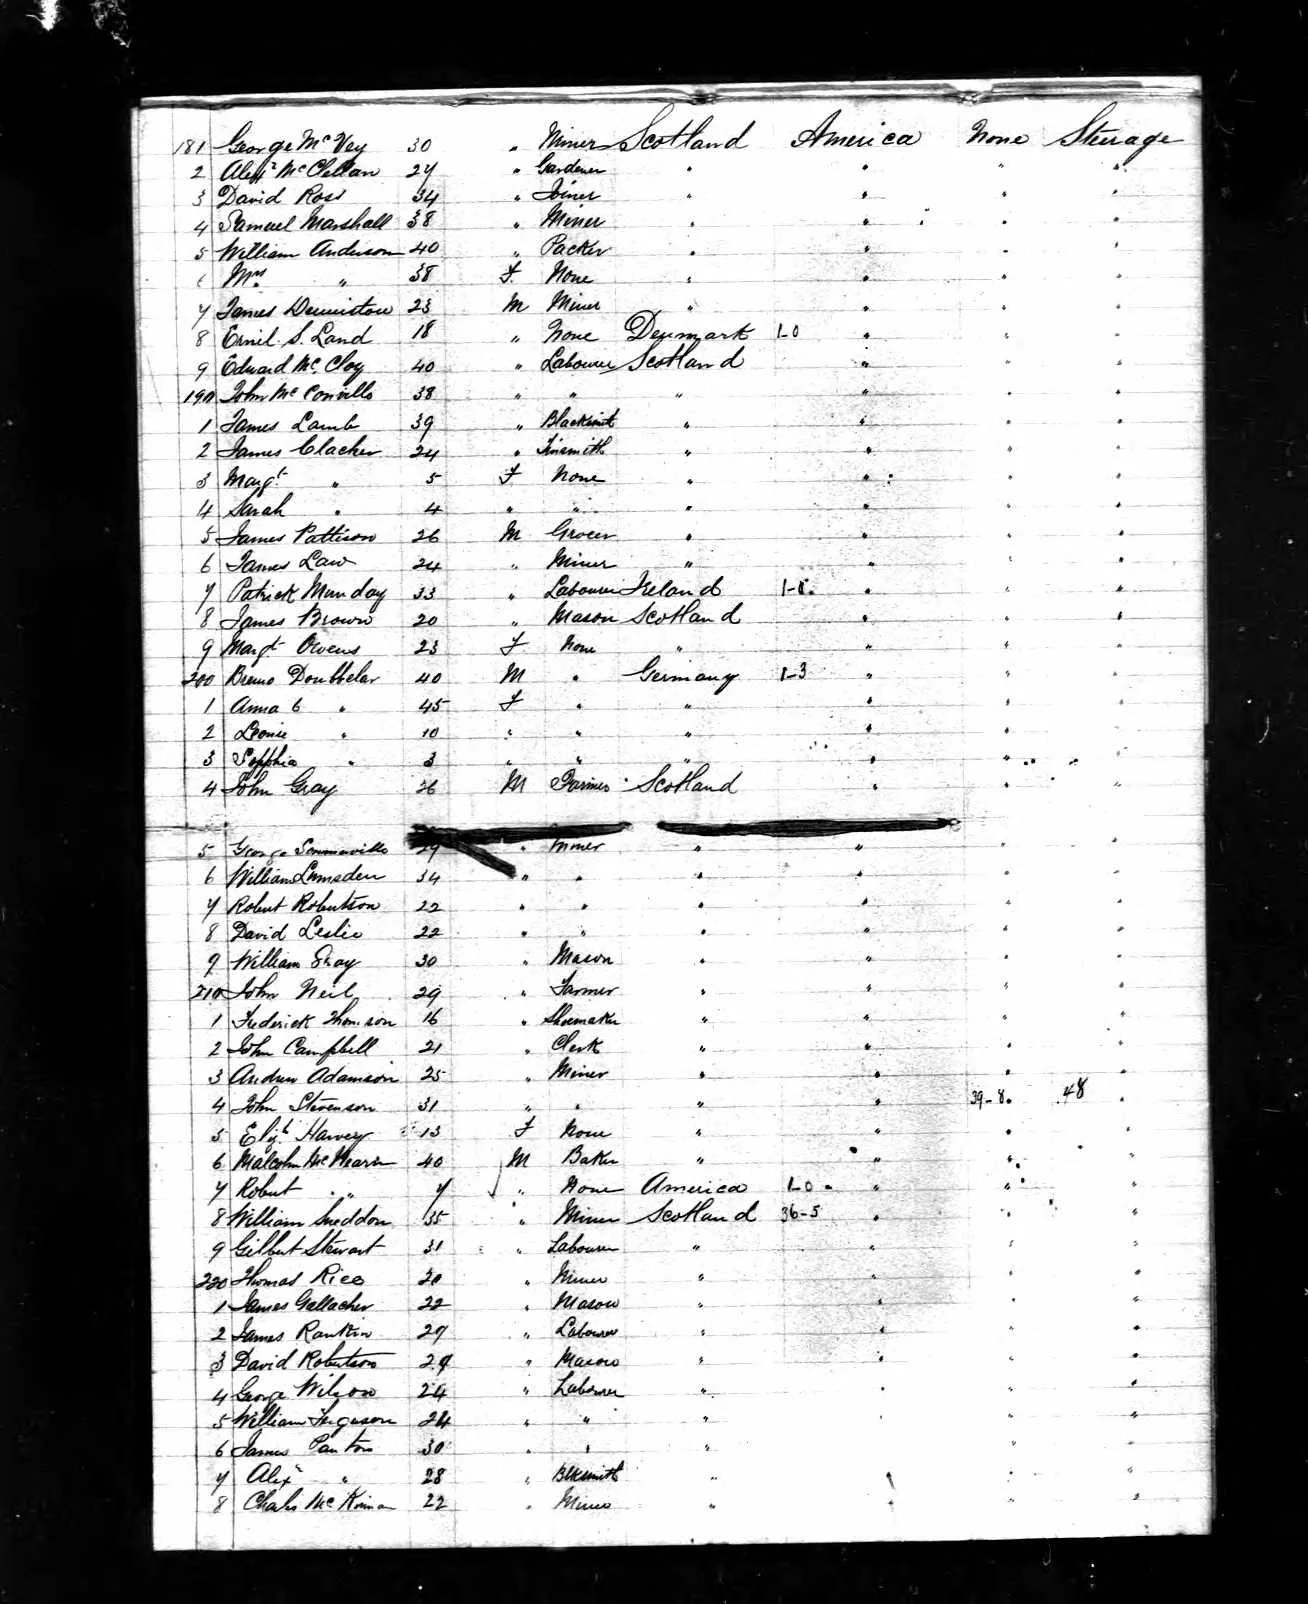 181 George McVey 30 " Miner Scotland America None Steerage
2 Alexr McClellan 24 " Gardener " " " "
3 David Ross 34 " Joiner " " " "
4 Samuel Marshall 38 " Miner " " " "
5 William Anderson 40 " Packer " " " "
6 Mrs " 38 F. None " " " "
7 James Denniston 23 M Miner " " " "
8 S. Land 18 " None Denmark 1-0 " " "
9 Edward McCloy 40 " Labourer Scotland " " "
190 John McConville 38 " " " " " "
1 James Lamb 39 " Blacksmit " " " "
2 James Clacher 24 " Tinsmith " " " "
3 Margt " 5 F None " " " "
4 Sarah " 4 " " " " " "
5 James Pattison 26 M Grocer " " " "
6 James Law 24 " Miner " " " "
7 Patrick Munday 33 " Labourer Ireland " " "
8 James Brown 20 " Mason Scotland " " "
9 Margt Owens 23 F None " " " "
200 Doubbelar 40 M " Germany 1-3 " " "
1 Anna " 45 F " " " " "
2 Leonie " 10 " " " " " "
3 Sopphia " 3 " " " " " "
4 John Gray 26 M Farmer Scotland " " "
5 George 29 " Miner " " " "
6 William Lumsden 34 " " " " " "
7 Robert Robertson 22 " " " " " "
8 David Leslie 22 " " " " " "
9 William 30 " Mason " " " "
210 John Neil 29 " Farmer " " " "
1 Frederick Thomson 16 " Shoemaker " " " "
2 John Campbell 21 " Clerk " " " "
3 Andrew Adamson 25 " Miner " " " "
4 John Stevenson 31 " " " " 39-8 48 "
5 Elizth Harvey 13 F None " " " "
6 Malcolm 40 M Baker " " " "
7 Robert " 7 " None America 1-0 " " "
8 William Sneddon 35 " Miner Scotland 36-5 " " "
9 Gilbert Stewart 31 " Labourer " " " "
220 Thomas Rice 20 " Miner " " " "
1 James Gallacher 22 " Mason " " " "
2 James Rankin 27 " Labourer " " " "
3 David Robertson 29 " Mason " " " "
4 George Wilson 24 " Labourer " " " "
5 William Ferguson 24 " " " " " "
6 James Panton 30 " " " " "
7 Alexr " 28 " Blksmith " " "
8 Charles McKinnon 22 " Miner " " " "